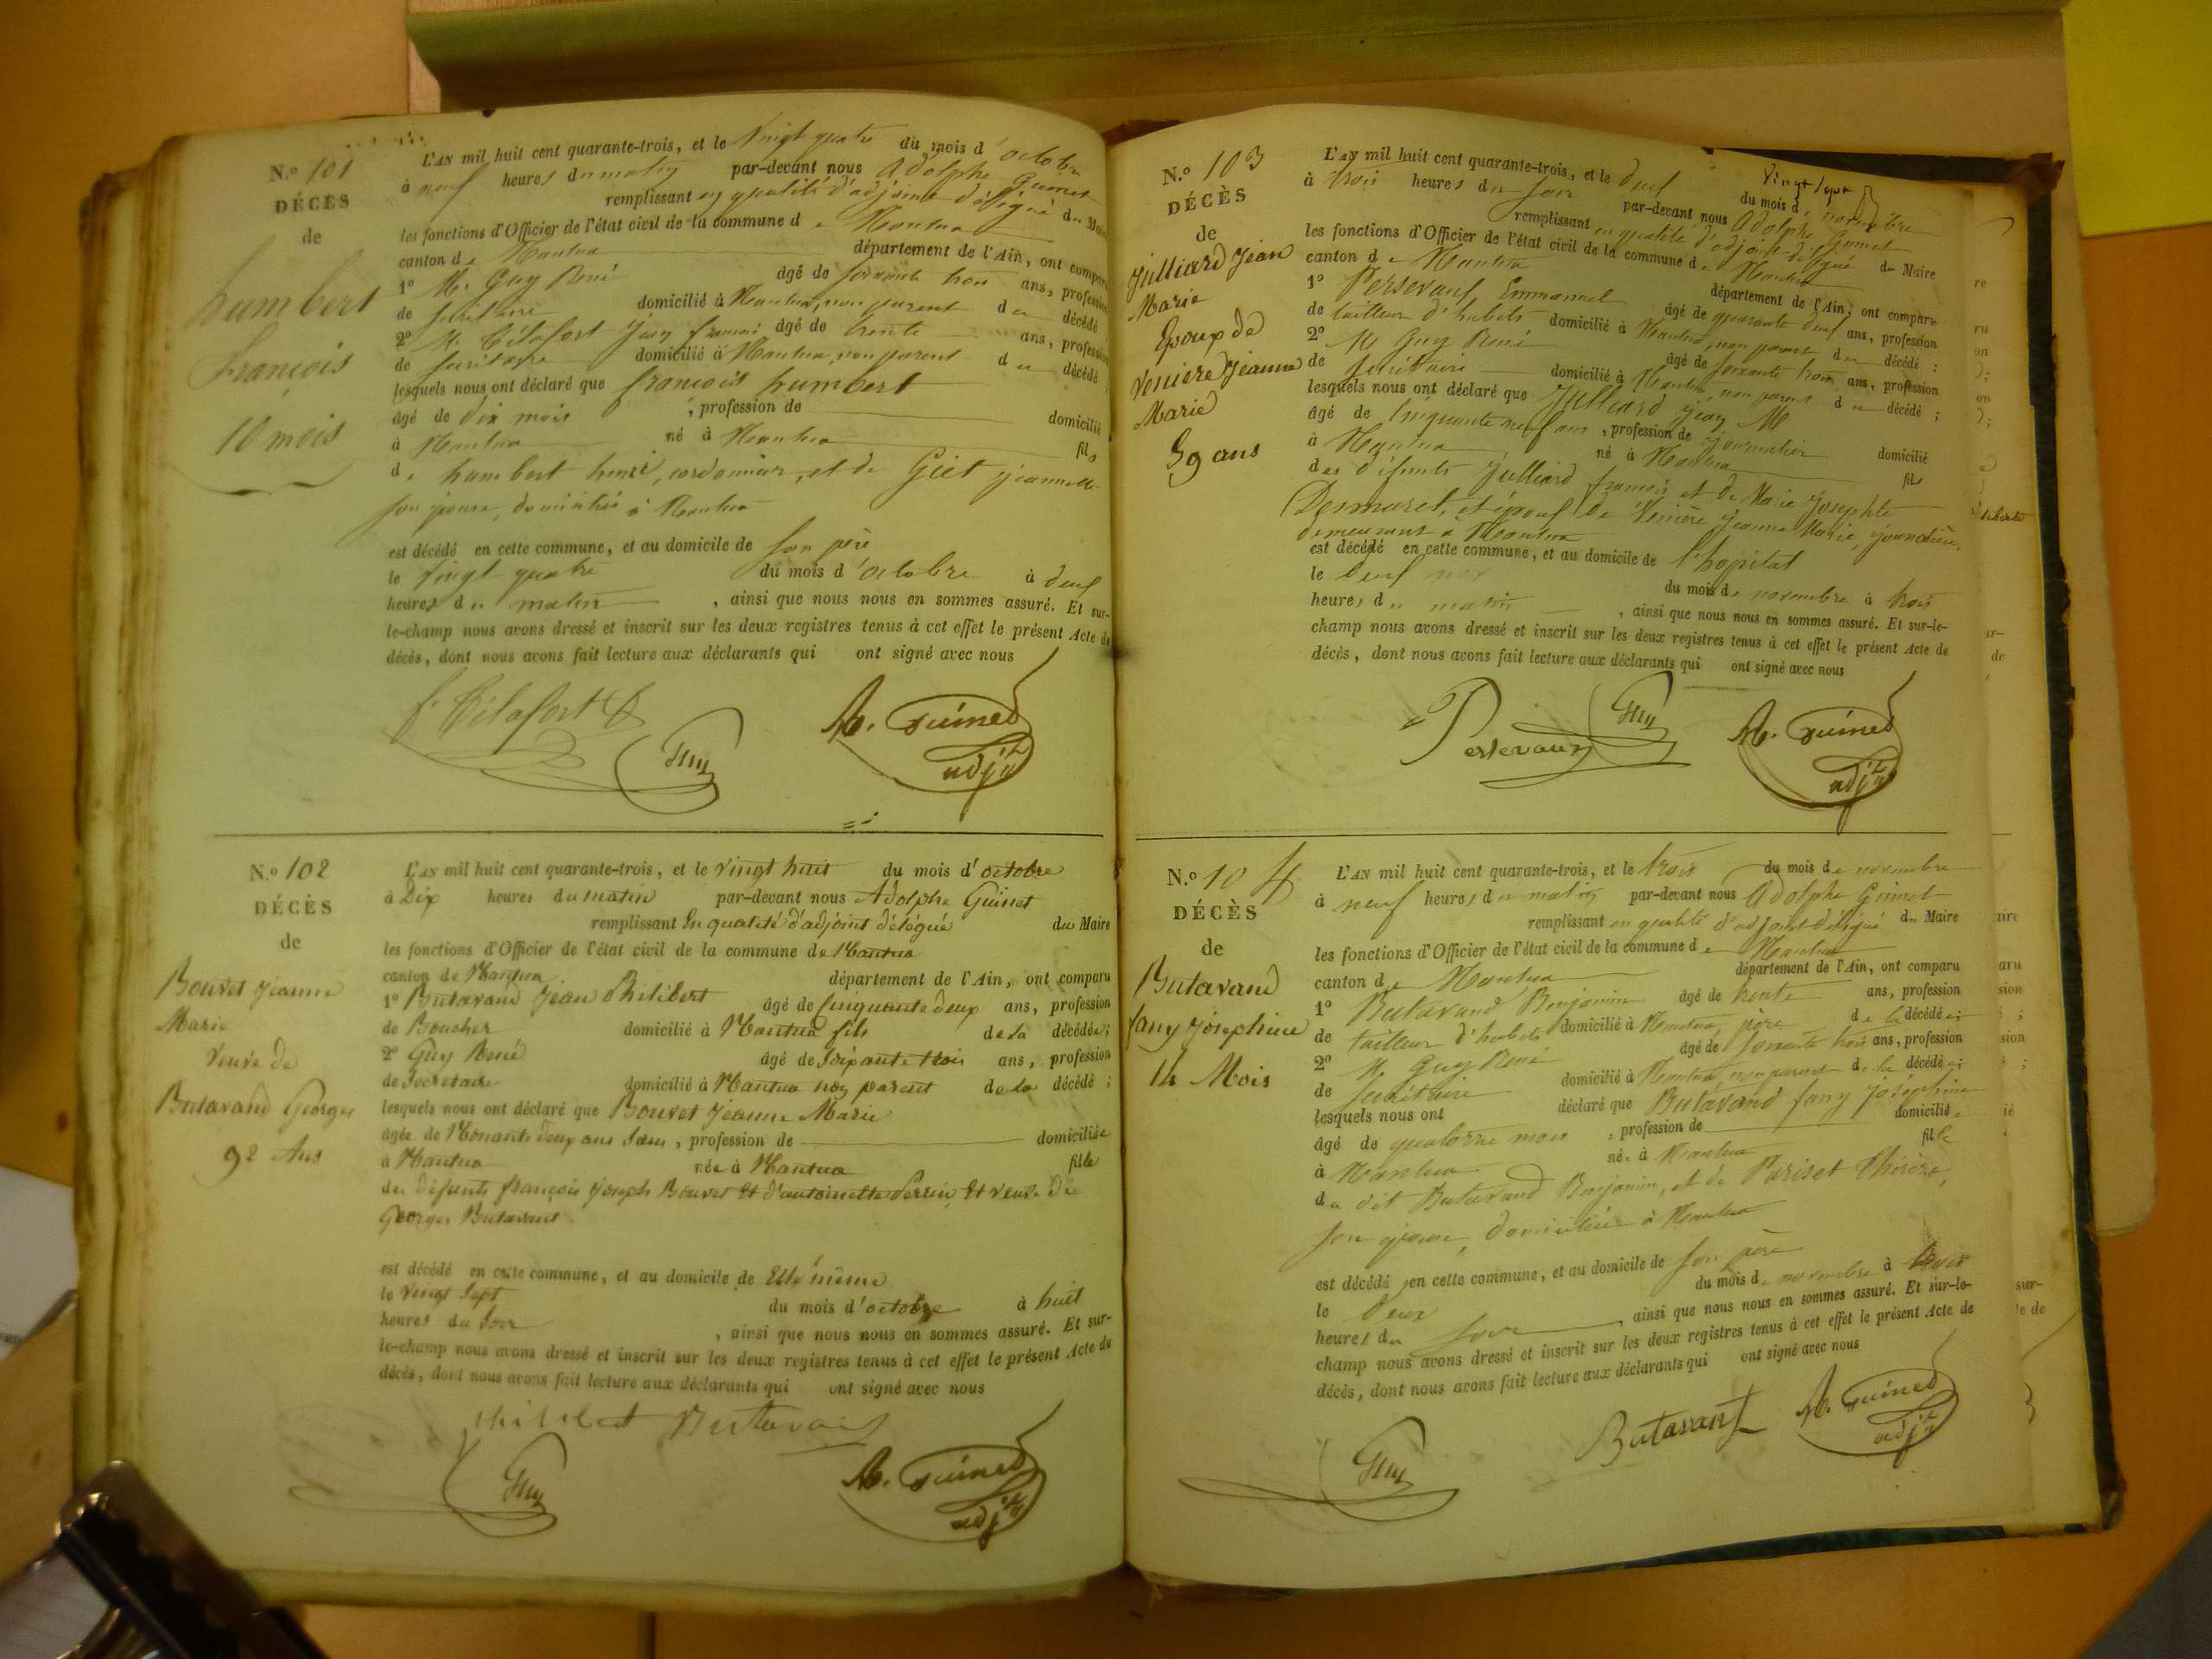 N.o 101
DÉCÈS
de
humbert
françois
10 mois
L'AN mil huit cent quarante-trois, et le vingt quatre du mois d'octobre
à neuf heures du matin par-devant nous Adolphe Guinet
remplissant en qualité d'adjoint délégué du Maire
les fonctions d'Officier de l'état civil de la commune de Nantua
canton de Nantua département de l'Ain, ont comparu
1o M. Guy René âgé de soixante trois ans, profession
de secrétaire domicilié à Nantua, non parent du décédé
2o M. Célafort Jean françois âgé de trente ans, profession
de secrétaire domicilié à Nantua, non parent du décédé;
lesquels nous ont déclaré que françois humbert
âgé de dix mois, profession de domicilié
à Nantua né à Nantua fils
de humbert henri, cordonnier, et de Giet jeannette
son épouse, domiciliés à Nantua
est décédé en cette commune, et au domicile de son père
le vingt quatre du mois d'octobre à deux
heures du matin, ainsi que nous nous en sommes assuré. Et sur-
le-champ nous avons dressé et inscrit sur les deux registres tenus à cet effet le présent Acte de
décès, dont nous avons fait lecture aux déclarants qui ont signé avec nous
Guy
A. Guinet
adjt
N.o 102
DÉCÈS
de
Bouvet Jeanne
Marie
veuve de
Butavand Georges
92 Ans
L'AN mil huit cent quarante-trois, et le vingt huit du mois d'octobre
à Dix heures du matin par-devant nous Adolphe Guinet
remplissant En qualité d'adjoint délégué du Maire
les fonctions d'Officier de l'état civil de la commune de Nantua
canton de Nantua département de l'Ain, ont comparu
1o Butavand Jean Philibert âgé de Cinquante deux ans, profession
de Boucher domicilié à Nantua fils de la décédée;
2o Guy René âgé de Soixante trois ans, profession
de Secretaire domicilié à Nantua non parent de la décédé;
lesquels nous ont déclaré que Bouvet Jeanne Marie
âgée de Nonante deux ans, profession de domiciliée
à Nantua née à Nantua fille
des défunts françois Joseph Bouvet Et d'antoinette Perrin Et veuve De
Georges Butavant
est décédé en cette commune, et au domicile de Elle même
le vingt Sept du mois d'octobre à huit
heures du Soir, ainsi que nous nous en sommes assuré. Et sur-
le-champ nous avons dressé et inscrit sur les deux registres tenus à cet effet le présent Acte de
décès, dont nous avons fait lecture aux déclarants qui ont signé avec nous
Guy
A. Guinet
adjt
N.o 103
DÉCÈS
de
Julliard Jean
Marie
Epoux de
Veniere Jeanne
Marie
59 ans
L'AN mil huit cent quarante-trois, et le deux du mois de novembre
à trois heures du soir par-devant nous Adolphe Guinet
remplissant en qualité d'adjoint délégué du Maire
les fonctions d'Officier de l'état civil de la commune de Nantua
canton de Nantua département de l'Ain, ont comparu
1o Persevaux Emmanuel âgé de quarante deux ans, profession
de tailleur d'habits domicilié à Nantua, non parent du décédé;
2o M. Guy René âgé de soixante trois ans, profession
de secrétaire domicilié à Nantua non parent du décédé;
lesquels nous ont déclaré que Julliard Jean M
âgé de Cinquante neuf ans, profession de journalier domicilié
à Nantua né à Nantua fils
des défunts Julliard françois et de Marie Josephte
Desmaret, et époux de Venière Jeanne Marie, journalière,
demeurant à Nantua
est décédé en cette commune, et au domicile de l'hopital
le deux du mois de novembre à trois
heures du matin, ainsi que nous nous en sommes assuré. Et sur-le-
champ nous avons dressé et inscrit sur les deux registres tenus à cet effet le présent Acte de
décès, dont nous avons fait lecture aux déclarants qui ont signé avec nous
Persevaux
Guy
A. Guinet
adjt
N.o 104
DÉCÈS
de
Butavand
fany Joséphine
14 Mois
L'AN mil huit cent quarante-trois, et le trois du mois de novembre
à neuf heures du matin par-devant nous Adolphe Guinet
remplissant en qualité d'adjoint délégué du Maire
les fonctions d'Officier de l'état civil de la commune de Nantua
canton de Nantua département de l'Ain, ont comparu
1o Butavand Benjamin âgé de trente ans, profession
de tailleur d'habits domicilié à Nantua, père de la décédée;
2o M. Guy René âgé de soixante trois ans, profession
de secrétaire domicilié à Nantua, non parent de la décédée;
lesquels nous ont déclaré que Butavand fany Joséphine
âgé de quatorze mois, profession de domiciliée
à Nantua née à Nantua fille
du dit Butavand Benjamin, et de Pariset Thérèze,
son épouse, domiciliés à Nantua
est décédé en cette commune, et au domicile de son père
le deux du mois de novembre à trois
heures du soir, ainsi que nous nous en sommes assuré. Et sur-le-
champ nous avons dressé et inscrit sur les deux registres tenus à cet effet le présent Acte de
décès, dont nous avons fait lecture aux déclarants qui ont signé avec nous
Guy
Butavant
A. Guinet
adjt